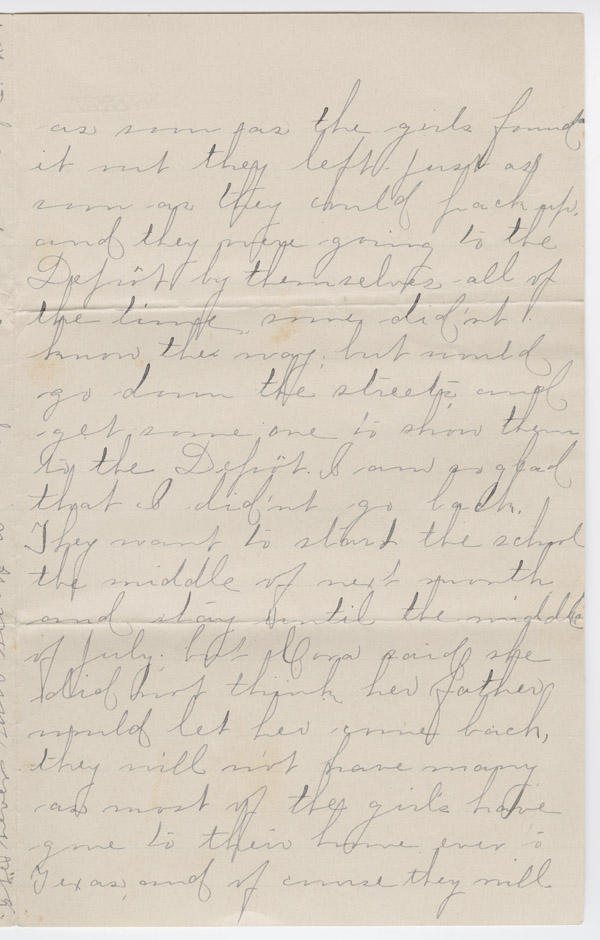 as soon as the girls found
it out they left. just as
soon as they could pack up.
and they were going to the
Depôt by themselves all of
the time, some did'nt
know the way, but would
go down the streets and
get some one to show them
to the Depôt. I am so glad
that I did'nt go back.
They want to start the school
the middle of next month
and stay until the middle
of July. but Cora said she
did not think her father
would let her come back,
they will not have many
as most of the girls have
gone to their home ever to
Texas, and of course they will